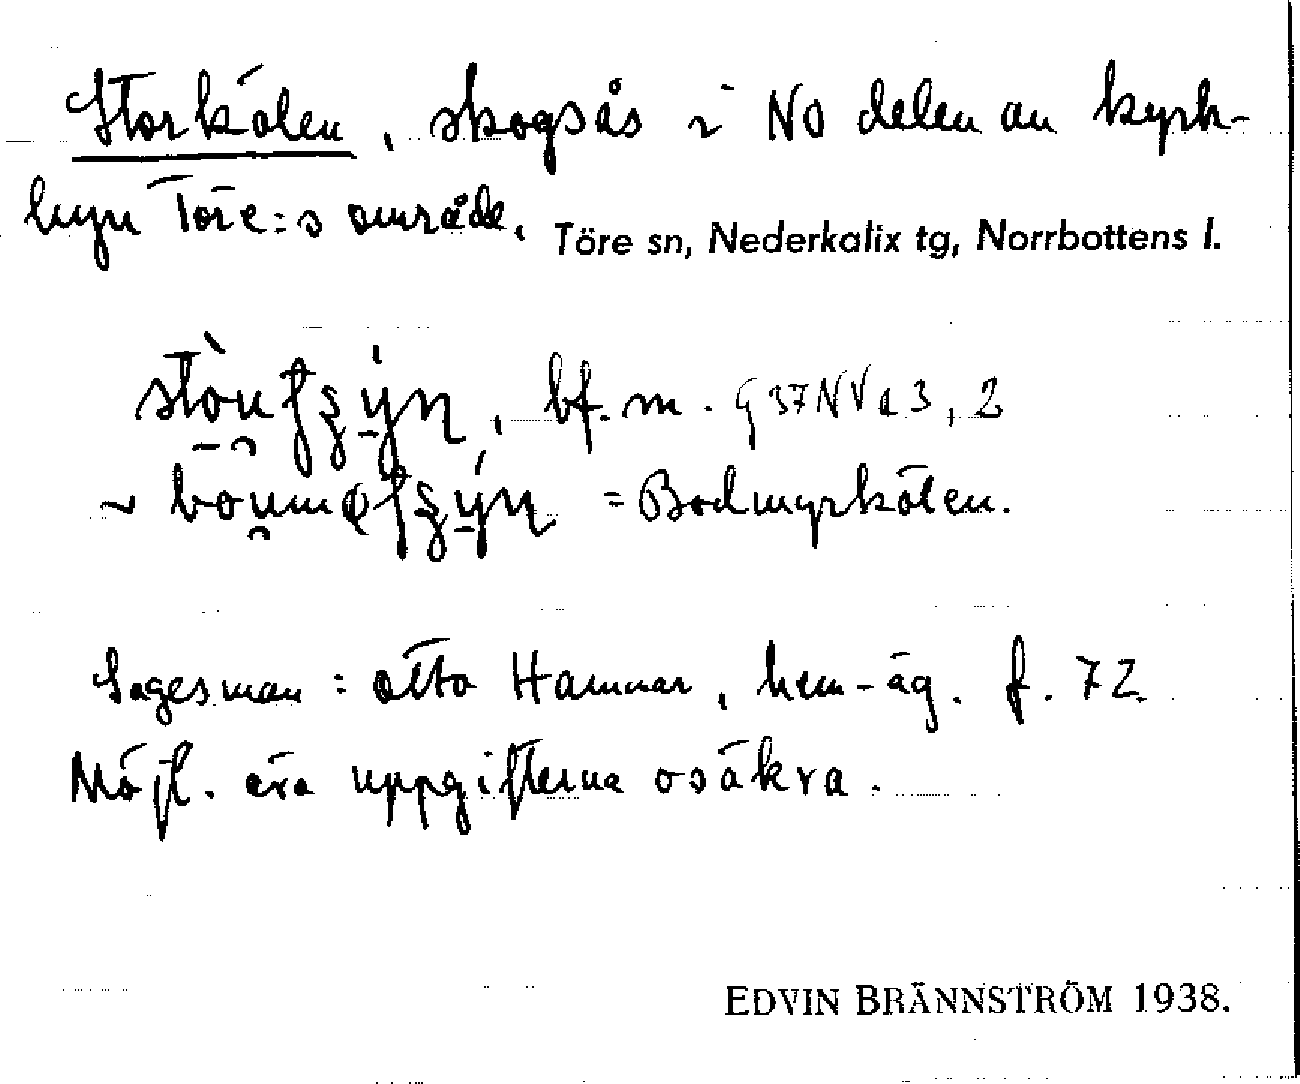 Storkölen, skogsås i NO delen av kyrk-
byn Töre:s område.
Töre sn, Nederkalix tg, Norrbottens l.
bf. m. 937NVa3,2
~ = Bodmyrkölen.
Sagesman: Otto Hammar, hem-äg. f. 72
Möjl. ära uppgifterna osäkra.
EDVIN BRÄNNSTRÖM 1938.